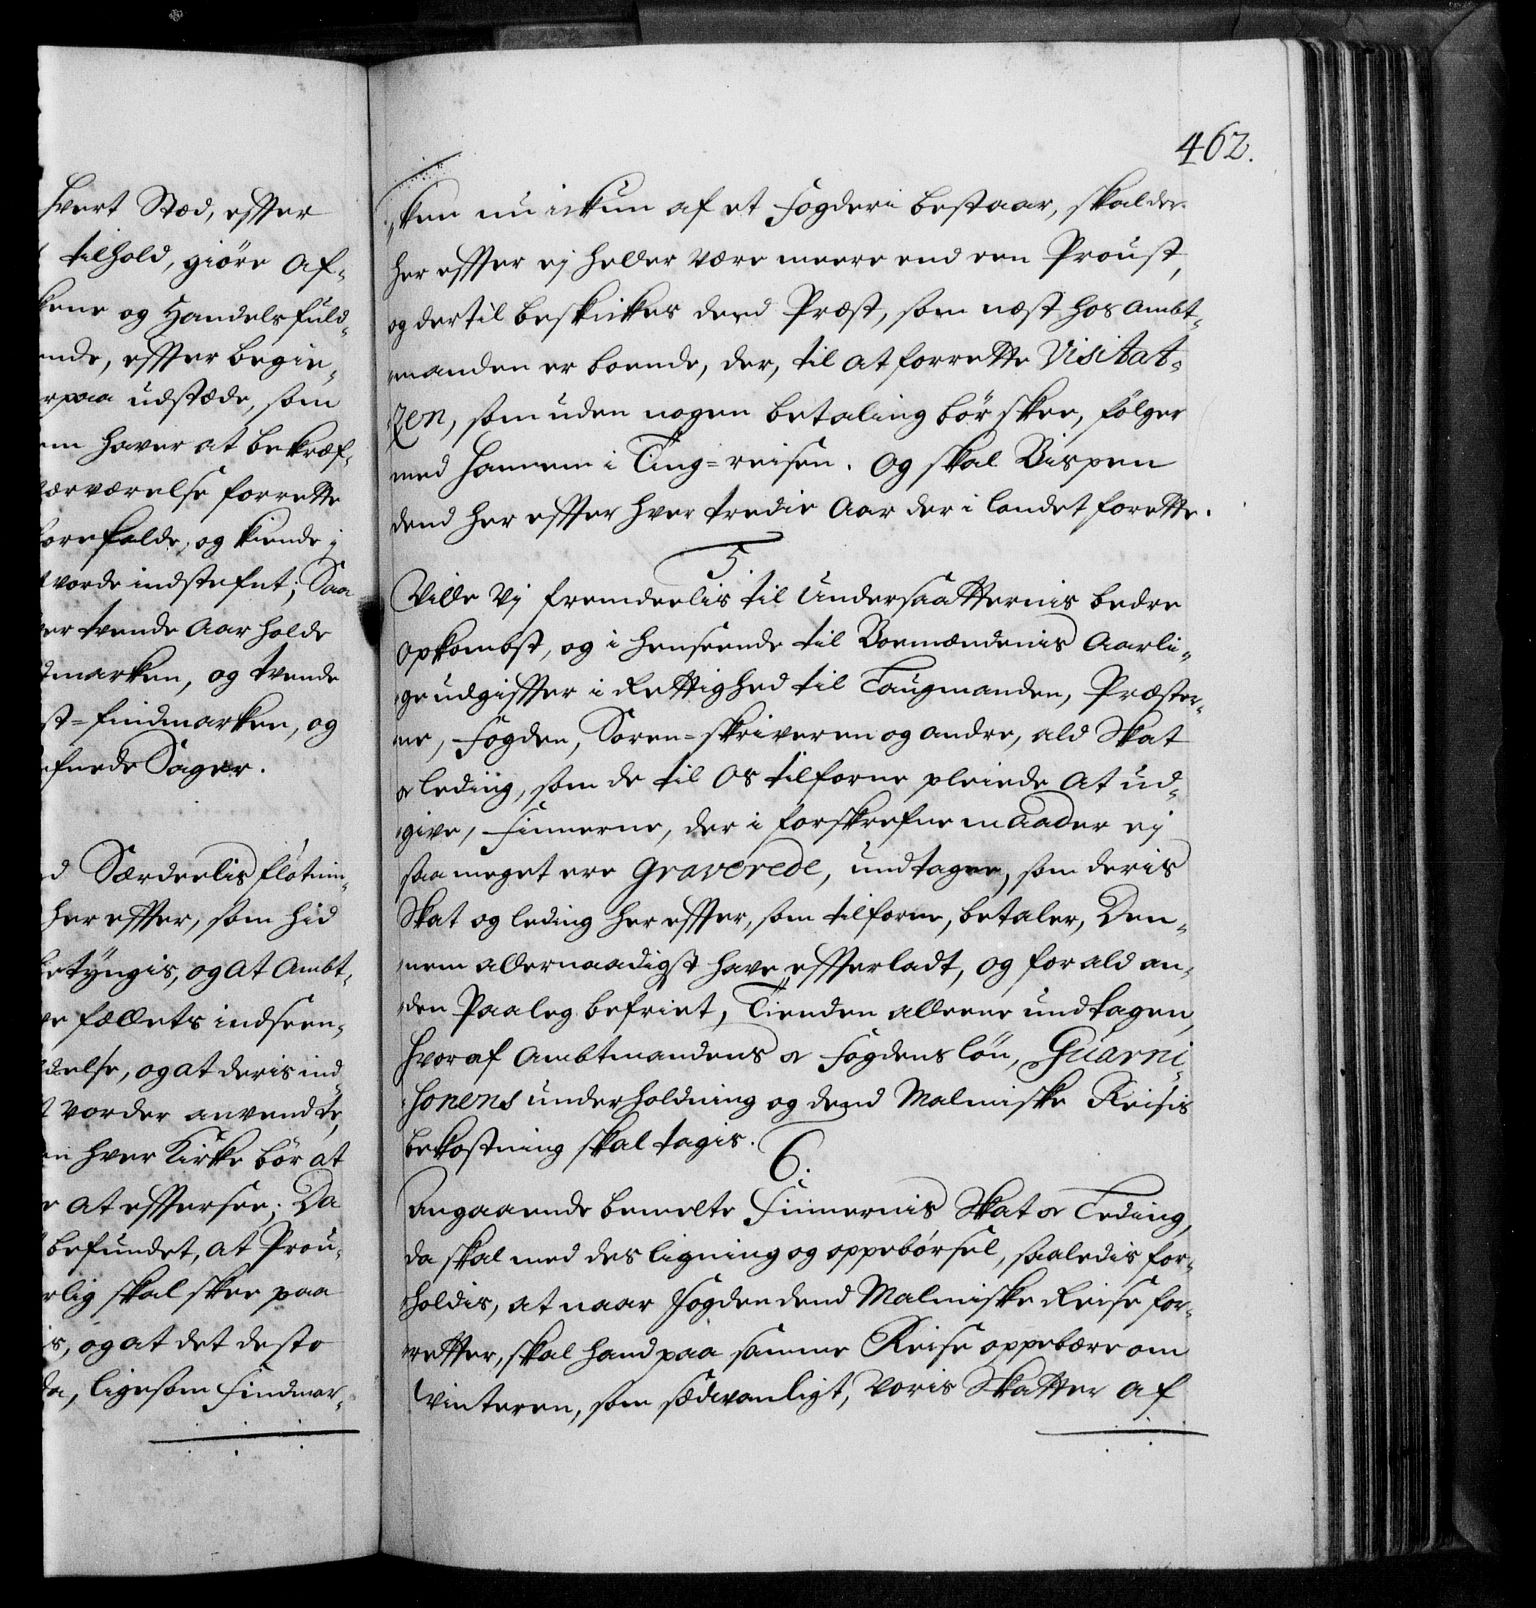 hvert Stæd, effter
tilhold, giöre Af-
kene og Handels fuld-
ende, effter begie-
rpaa udstæde, som
em haver at bekræf-
ærværelse forrette
forefalde, og kiende i
vorde indstefnt; Saa
er tvende Aar holde
dmarken, og tvende
st-findmarken, og
efnede Sager.
d Særdeelis
her effter, som hid
betÿngis, og at Ambt-
fællets indseen-
delse, og at deris ind-
t vorder anvendte,
en hver Kirke bör at
e at effersee; Da
befundet, at Prou-
rlig skal skee paa
is, og at det desto
da, ligesom Findmar-
462.
-ken nu ickun af et Fogderi bestaar, skal der
her effter ej heller være meere end een Proust,
og dertil beskickes dend Præst, som næst hos Ambt-
manden er boende, der, til at forrette Visitat-
zen, som uden nogen betaling bör skee, fölger
med hannem i Ting-reisen. Og skal Bispen
dend her effter hver tredie Aar der i landet forette.
5.
Ville Vj fremdeelis til Undersaatternis bedre
opkombst, og i henseende til Boemændenis Aarli-
ge udgiffter i Rettighed til Laugmanden, Præster-
ne, Fogden, Soren-skriveren og andre, ald Skat
og leding, som de til Os tilforne pleiede at ud-
give, Finnerne, der i forskrefne maader ej
saa meget ere Graverede, undtagen, som deris
Skat og leding her effter, som tilforne, betaler, Den-
nem allernaadigst have effterladt, og for ald an-
den Paaleg befriet, Tienden alleene undtagen,
hvoraf Ambtmandens og Fogdens lön, Guarni-
sonens underholdning og dend Malmiske Reisis
bekostning skal tagis.
6.
Angaaende bemelte Finnernis Skat og Leding,
da skal med des ligning og oppebörsel, saaledis for-
holdis, at naar Fogden dend Malmiske Reise for-
retter, skal hand paa samme Reise oppebære om
vinteren, som sædvanligt, Voris Skatter af